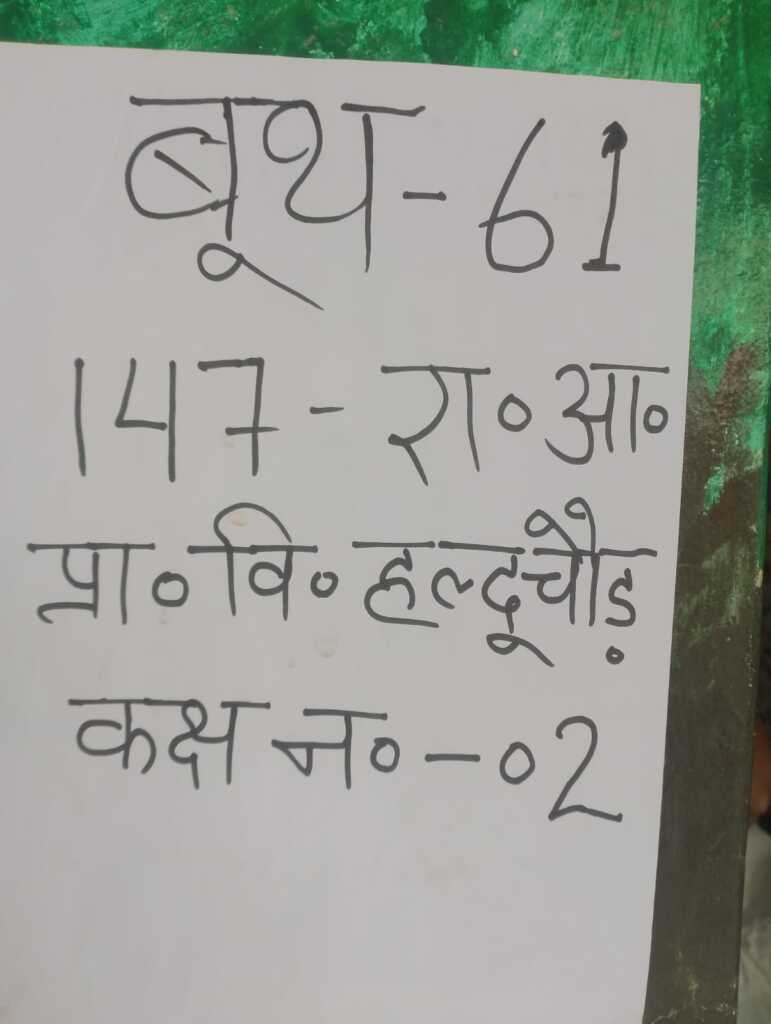 बूथ - 61
147 - रा॰ आ॰
प्रा॰ वि॰ हल्दूचौड़
कक्ष न॰ - 02